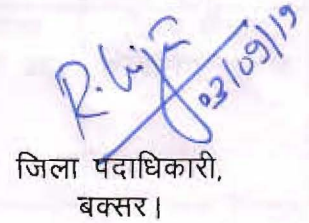 03/09/19
जिला पदाधिकारी,
बक्सर।